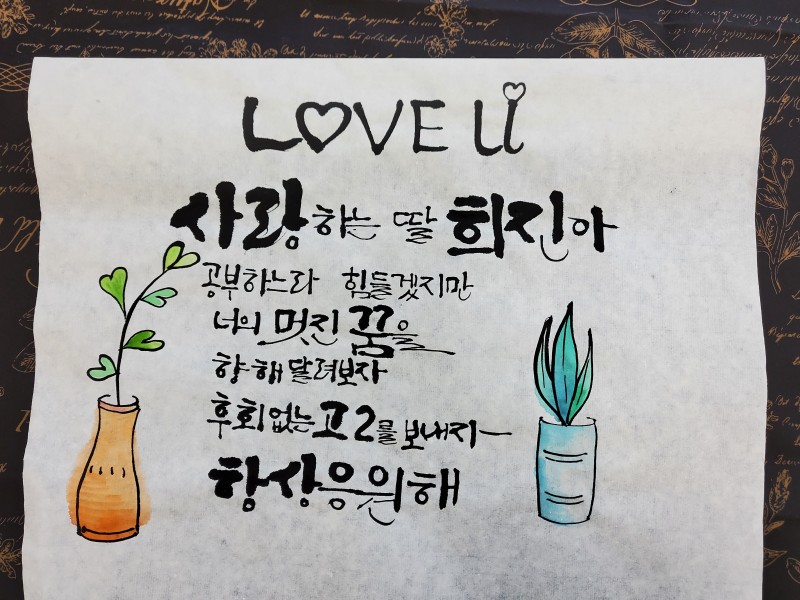 LOVE U
사랑하는 딸 희진아
공부하느라 힘들겠지만
너의 멋진 꿈을
향해 달려보자
후회없는 고2를 보내자
항상응원해